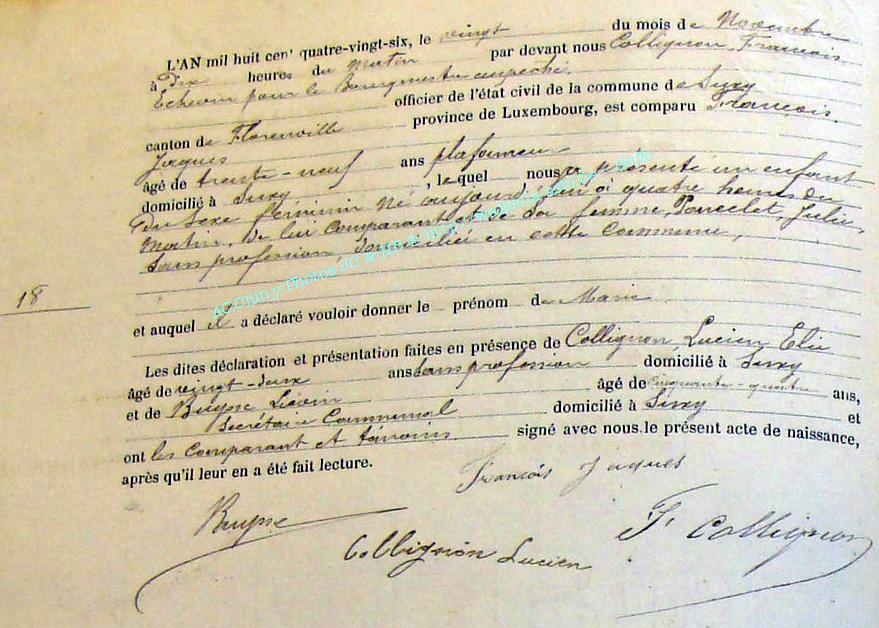 L'AN mil huit cent quatre-vingt-six, le vingt du mois de Novembre
à Dix heures du Matin par devant nous Collignon, François
Echevin pour le Bourgmestre empêché,
officier de l'état civil de la commune de Suxy
canton de Florenville province de Luxembourg, est comparu François
Jaques
âgé de trente-neuf ans plafonneur
domicilié à Suxy, lequel nous a présenté un enfant
du sexe féminin né aujourd'hui à quatre heures du
Matin, de lui comparant et de sa femme, Julie,
sans profession, domiciliée en cette Commune,
18
et auquel il a déclaré vouloir donner le prénom de Marie
Les dites déclaration et présentation faites en présence de Collignon, Lucien Elie
âgé de vingt-deux ans sans profession domicilié à Suxy
et de Buysse Liévin âgé de cinquante-quatre ans,
Secrétaire Communal domicilié à Suxy et
ont les Comparant et témoins signé avec nous le présent acte de naissance,
après qu'il leur en a été fait lecture.
François Jaques
Buysse
F Collignon
Collignon Lucien